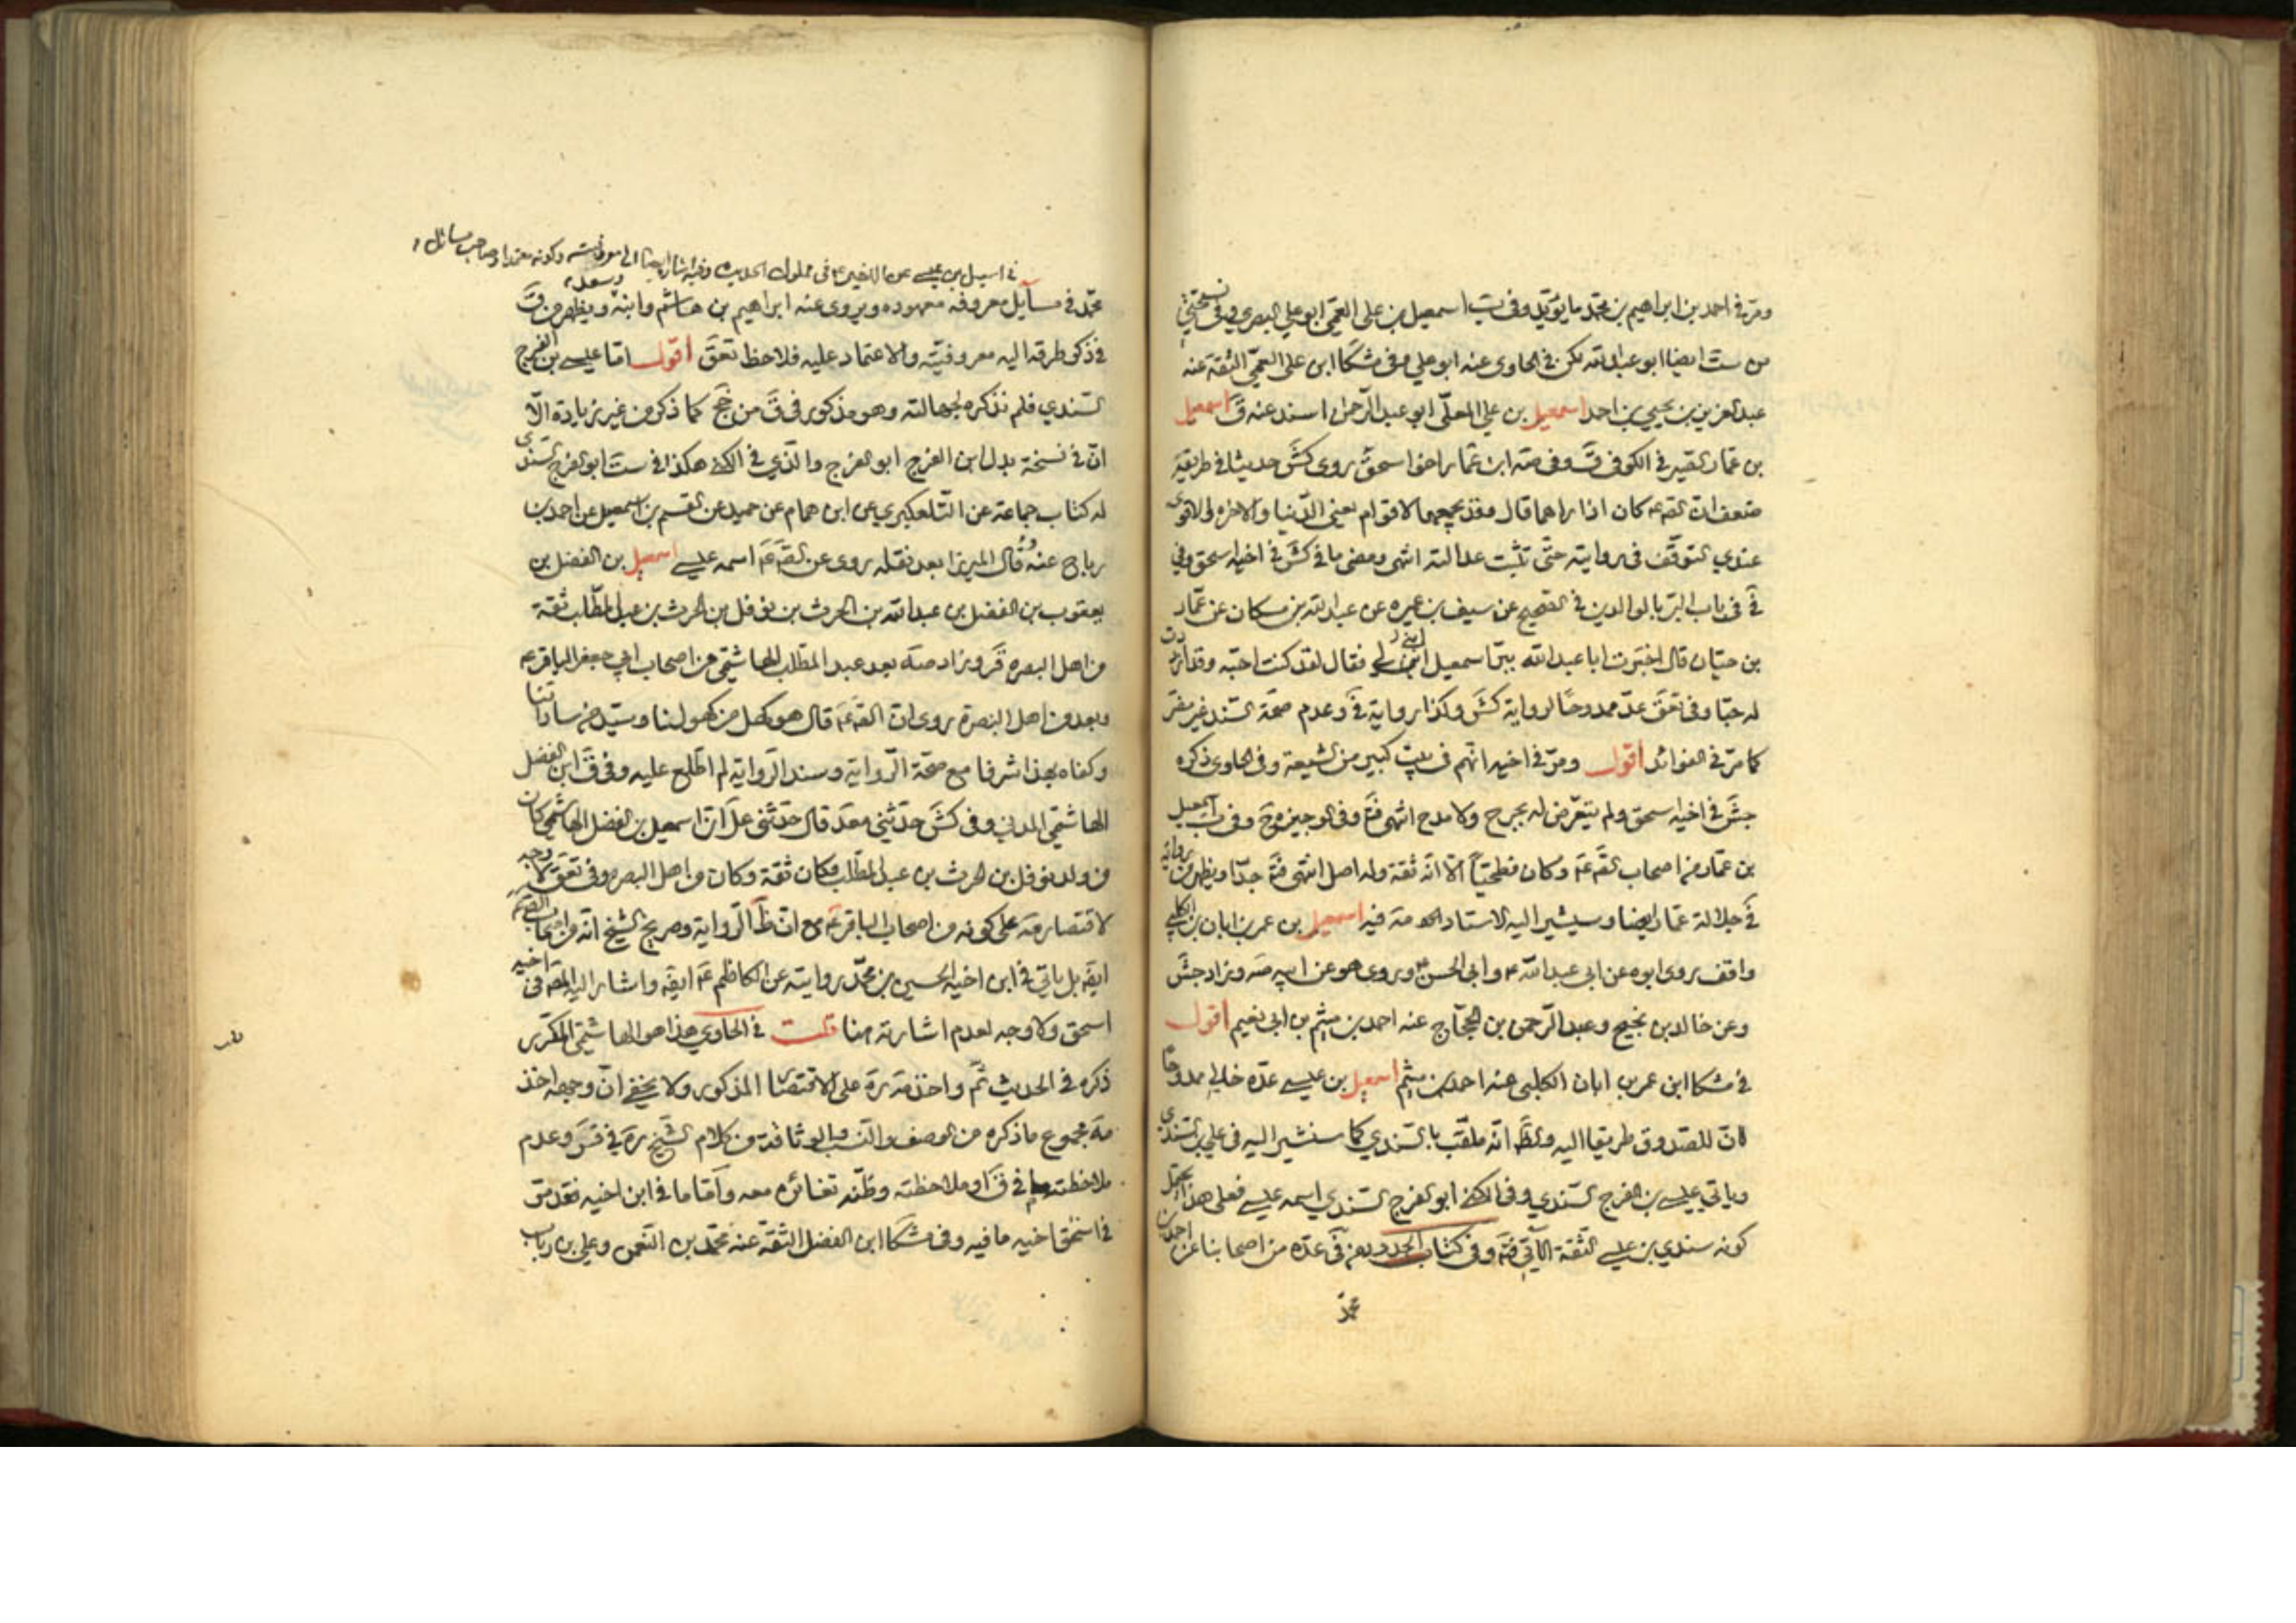 ومر في احمد بن ابراهيم بن محمد ما يؤيد وفي ب اسمعيل بن علي العمي ابو علي البصري وفي نسختي
من ست ايضا ابو عبد الله لكن في الحاوي عنه ابو علي وفي مشكا ابن علي العمي الثقة عنه
عبد العزيز بن يحيى بن احمد اسمعيل بن علي المعلى ابو عبد الرحمن اسند عنه ق اسمعيل
بن عمار الصيرفي الكوفي ق وفي صه ابن عمار اخو اسحق روى كش حديثا في طريقه
ضعف ان الصه عه كان اذا راهما قال وقد يجمعهما لاقوام يعني الدنيا والاخرة والاقوى
عندي التوقف في روايته حتى تثبت عدالته انتهى ومضى ما في كش في اخيه اسحق وفي
في في باب البر بالوالدين في الصحيح عن سيف بن عميره عن عبد الله بن مسكان عن عمار
بن حيان قال اخبرت ابا عبد الله ببر اسمعيل ابني لي فقال لقد كنت احبه وقد ازددت
له حبا وفي تعق عد ممدوحا لرواية كش وكذا رواية في وعدم صحة السند غير مضر
كما مر في الفوائد اقول ومر في اخيه انهم في بيت كبير من الشيعة وفي الحاوي ذكره
جش في اخيه اسحق ولم يتعرض له بجرح ولا مدح انتهى فتم وفي الوجيزه ح وفي ب اسمعيل
بن عمار من اصحاب الصه عه وكان فطحيا الا انه ثقة وله اصل انتهى فتم جدا ويظهر من رواية
في جلالة عمار ايضا وسيشير اليه الاستاد فيه اسمعيل بن عمر بن ابان بن الكلبي
واقف روى ابوه عن ابي عبد الله ع وابي الحسن ع وروى هو عن ابيه صه وزاد جش
وعن خالد بن نجيح وعبد الرحمن بن الحجاج عنه احمد بن ميثم بن ابي نعيم اقول
في مشكا ابن عمر بن ابان الكلبي عنه احمد بن ميثم اسمعيل بن عيسى عده خالي ممدوحا
لان للصدوق طريقا اليه والظ انه ملقب بالسندي كما سنشير اليه في علي بن السندي
وياتي عيسى بن الفرج السندي وفي الكنى ابو الفرج السندي اسمه عيسى فعلى هذا يحتمل
كونه سندي بن عيسى الثقة الآتي فتم وفي كتاب الحدود من في عدة من اصحابنا عن احمد بن
محمد
في اسمعيل بن عيسى عن الاخير ع في مملوك الحديث وفيه اشارة ايضا الى معروفيته وكونه معتمدا وصاحب مسائل
محمد في مسايل معروفه معهوده ويروى عنه ابراهيم بن هاشم وابنه وسعد ويظهر من ق
في ذكر طرقه اليه معروفيته والاعتماد عليه فلاحظ تعق اقول اما عيسى بن الفرج
السندي فلم نذكره لجهالته وهو مذكور في ق من جخ كما ذكر من غير زيادة الا
ان في نسخة بدل ابن الفرج ابو الفرج والذي في الكنى هكذا في ست ابو الفرج السندي
له كتاب جماعة عن التلعكبري عن ابن همام عن حميد عن القسم بن اسمعيل عن احمد بن
رباح عنه وقال الميرزا بعد نقله روى عن الصه عه اسمه عيسى اسمعيل بن الفضل بن
يعقوب بن الفضل بن عبد الله بن الحرث بن نوفل بن الحرث بن عبد المطلب ثقة
من اهل البصره قر وزاد صه بعد عبد المطلب الهاشمي من اصحاب ابي جعفر الباقر ع
وبعد من اهل البصرة روى ان الصه عه قال هو كهل من كهولنا وسيد من ساداتنا
وكفاه بهذا شرفا مع صحة الرواية وسند الرواية لم اطلع عليه وفي ق ابن الفضل
الهاشمي المدني وفي كش حدثني معد قال حدثني عل ان اسمعيل بن الفضل الهاشمي كان
من ولد نوفل بن الحرث بن عبد المطلب وكان ثقة وكان من اهل البصره وفي تعق لا وجه
لاقتصار صه على كونه من اصحاب الباقر ع مع ان ظ الرواية وصريح الشيخ انه من اصحاب الصه عم
ايضه بل ياتي في ابن اخيه الحسين بن محمد روايته عن الكاظم ع ايضه واشار اليه المصه في اخيه
اسحق ولا وجه لعدم اشارته هنا قلت في الحاوي هذا هو الهاشمي المكرر
ذكره في الحديث ثم واخذ مه ره على الاقتصار المذكور ولا يخفى ان وجهه اخذ
مه مجموع ما ذكره من الوصف والنسب والوثاقة من كلام الشيخ ره في قر وعدم
ملاحظته ما في ق او ملاحظته وظنه تغائره معه واما ما في ابن اخيه فقد مر
في اسحق اخيه ما فيه وفي مشكا ابن الفضل الثقة عنه محمد بن النعمن وعلي بن رباب